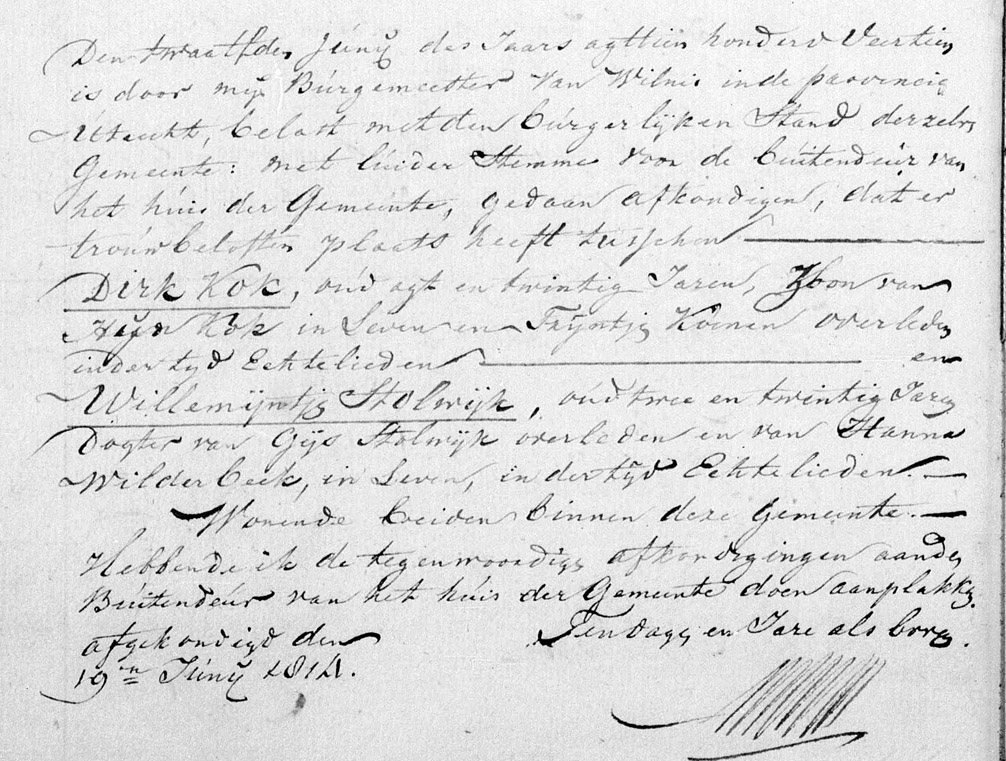 Den twaalfden Júnÿ des Jaars agttien honderd Veertien
is door mij Búrgemeester van Wilnis in de provincie
Utrecht, belast met den búrgerlijken Stand derzelve
Gemeente: met lúider Stemme voor de búitendeúr van
het húis der Gemeente, gedaan afkondigen, dat er
troúwbeloften plaats heeft tusschen
Dirk Kok, oúd agt en twintig Jaren, Zoon van
Heijn Kok in Leven en Trijntje Koenen overleden
in der tyd Echtelieden en
Willemijntje Stolwijk, oúd twee en twintig Jaren
Dogter van Gijs Stolwijk overleden en van Hanna
Wilderbeek, in Leven, in der tijd Echtelieden.
Wonende beiden binnen deze Gemeente.
Hebbende ik de tegenwoordige afkondigingen aan de
Búitendeúr van het húis der Gemeente doen aanplakken.
afgekondigd den Ten dage en Jare als boven.
19en Júnÿ 1814.